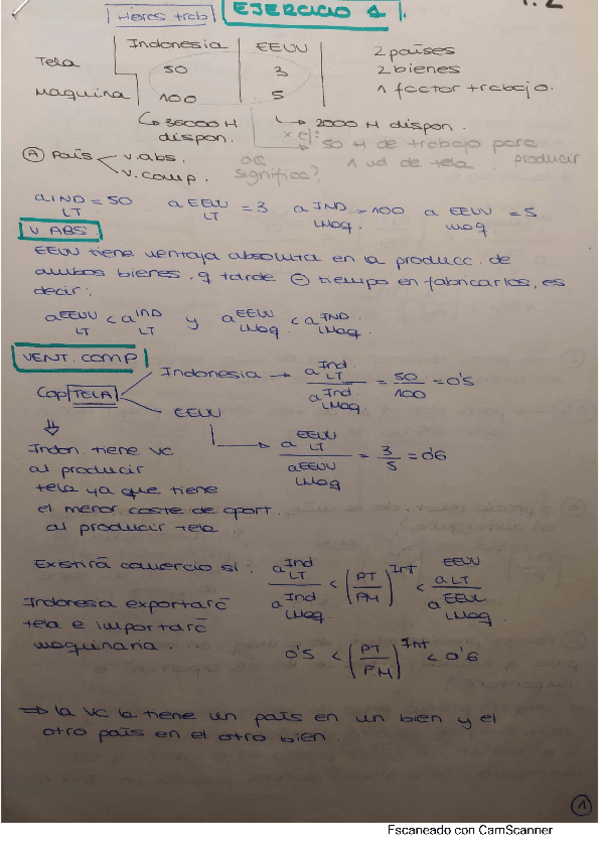 Horas trab EJERCICIO 1. 1.2
Indonesia EEUU 2 países
Tela 50 3 2 bienes
Maquina 100 5 1 factor trabajo.
↳ 36000 H dispon. ↳ 2000 H dispon.
x ej: 50 H de trabajo para producir
A País v.abs. v.comp. significa? 1 ud de tela.
a IND LT = 50 a EEUU LT = 3 a IND LMaq = 100 a EEUU Maq = 5
V. ABS
EEUU tiene ventaja absoluta en la producc. de
ambos bienes, q tarde ⊖ tiempo en fabricarlos, es
decir:
a EEUU LT < a IND LT y a EEUU LMaq < a IND LMaq.
VENT. COMP
Cop TELA Indonesia → a Ind LT / a Ind LMaq = 50/100 = 0'5
EEUU → a EEUU LT / a EEUU LMaq = 3/5 = 0'6
Indon. tiene VC
al producir
tela ya que tiene
el menor coste de oport.
al producir tela.
Existirá comercio si: a Ind LT / a Ind LMaq < (PT/PM) Int < EEUU a LT / a EEUU LMaq.
Indonesa exportará
tela e importará
maquinaria.
0'5 < (PT/PM) Int < 0'6
⇒ la VC la tiene un país en un bien y el
otro país en el otro bien.
1
Escaneado con CamScanner